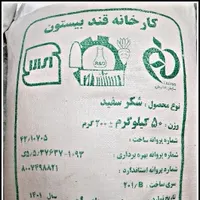 کارخانه قند بیستون
نوع محصول : شکر سفید
وزن : ۵۰ کیلوگرم ± ۲۰۰ گرم
شماره پروانه ساخت : ۴۲/۱۰۷۰۵
شماره پروانه بهره برداری :
شماره پروانه استاندارد : ۸۰۰۷۴۹۸۸۲۱
سری ساخت : ۲۰۱/B
تاریخ تولید : سال ۱۴۰۱